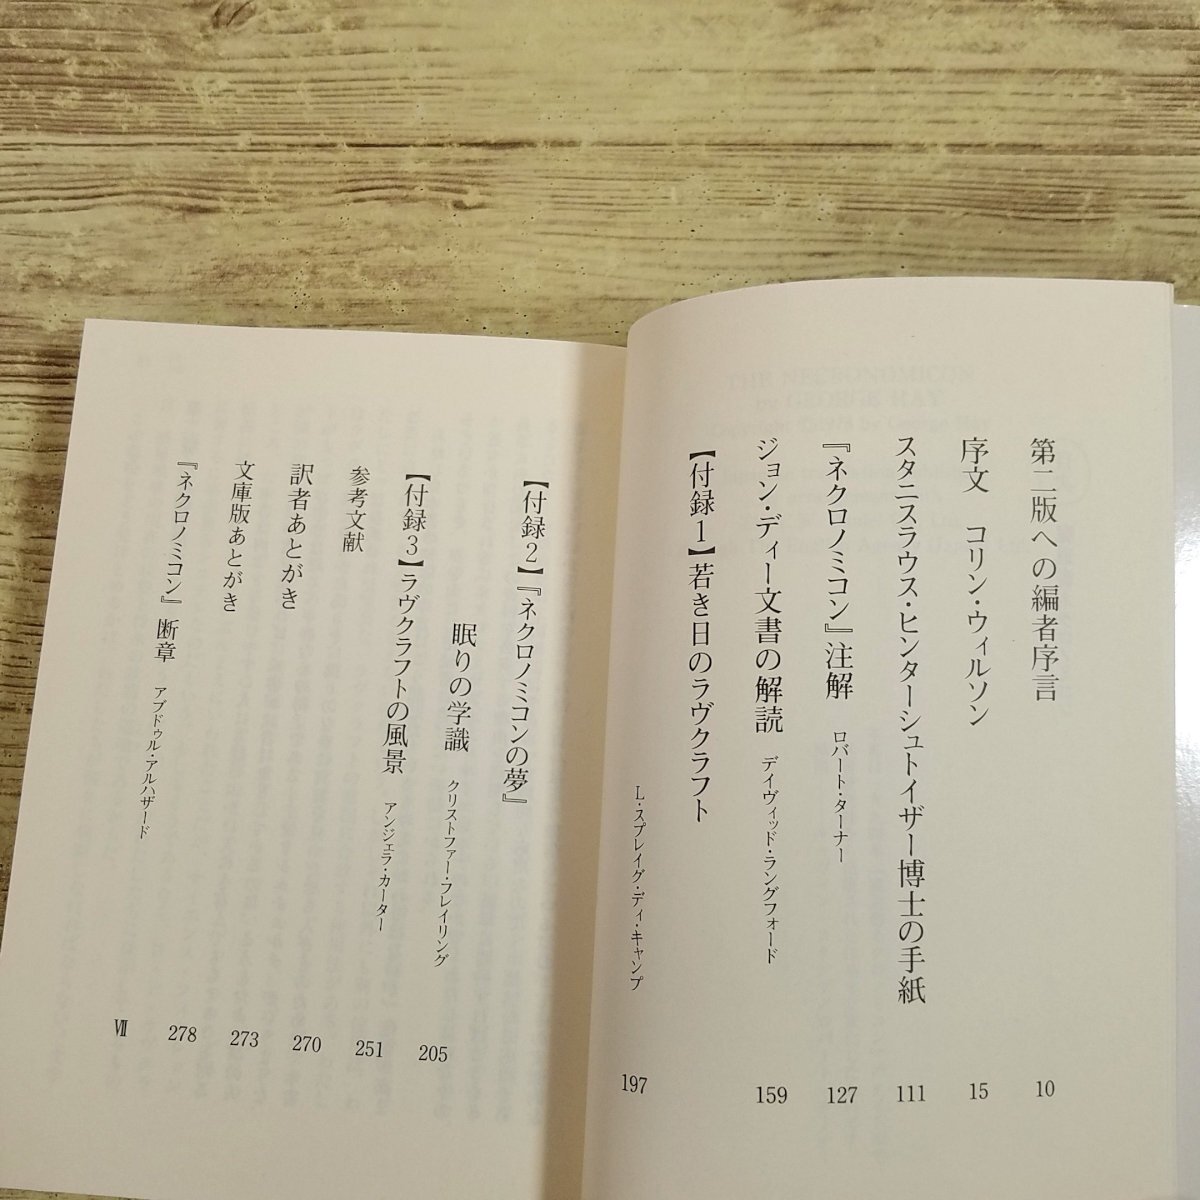 第二版への編者序言 10
序文 コリン・ウィルソン 15
スタニスラウス・ヒンターシュトイザー博士の手紙 111
『ネクロノミコン』注解 ロバート・ターナー 127
ジョン・ディー文書の解読 デイヴィッド・ラングフォード 159
【付録1】若き日のラヴクラフト
L・スプレイグ・ディ・キャンプ 197
【付録2】『ネクロノミコンの夢』
眠りの学識 クリストファー・フレイリング 205
【付録3】ラヴクラフトの風景 アンジェラ・カーター 251
参考文献 270
訳者あとがき 273
文庫版あとがき 278
『ネクロノミコン』断章 アブドゥル・アルハザード Ⅶ